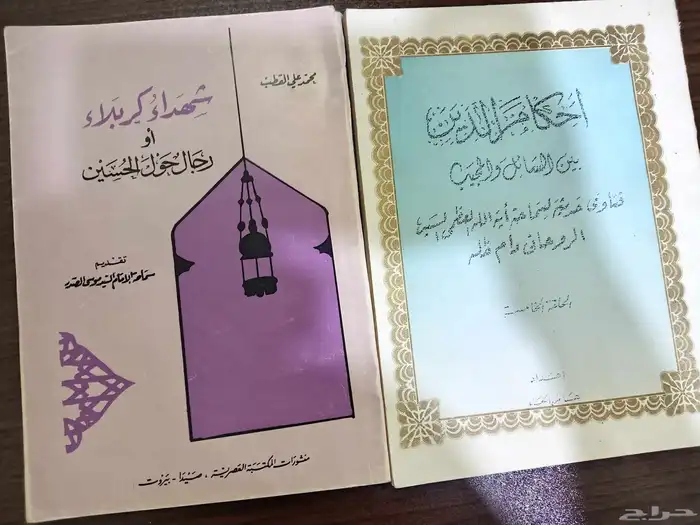 محمد علي القطب
شهداء كربلاء
أو
رجال حول الحسين
تقديم
سماحة الإمام السيد موسى الصدر
منشورات المكتبة العصرية ، صيدا - بيروت
أحكام من الدين
بين السائل والمجيب
فتاوى لسماحة آية الله العظمى السيد
الروحاني دام ظله
الحلقة الخامسة
إعداد
حراج